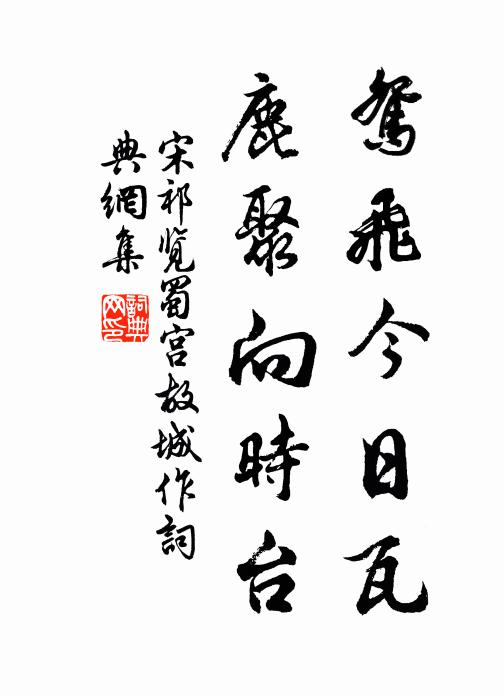 鴛飛今日瓦
鹿聚向時台
宋祁覽蜀宮故城作詞
典網集
詞典
网印